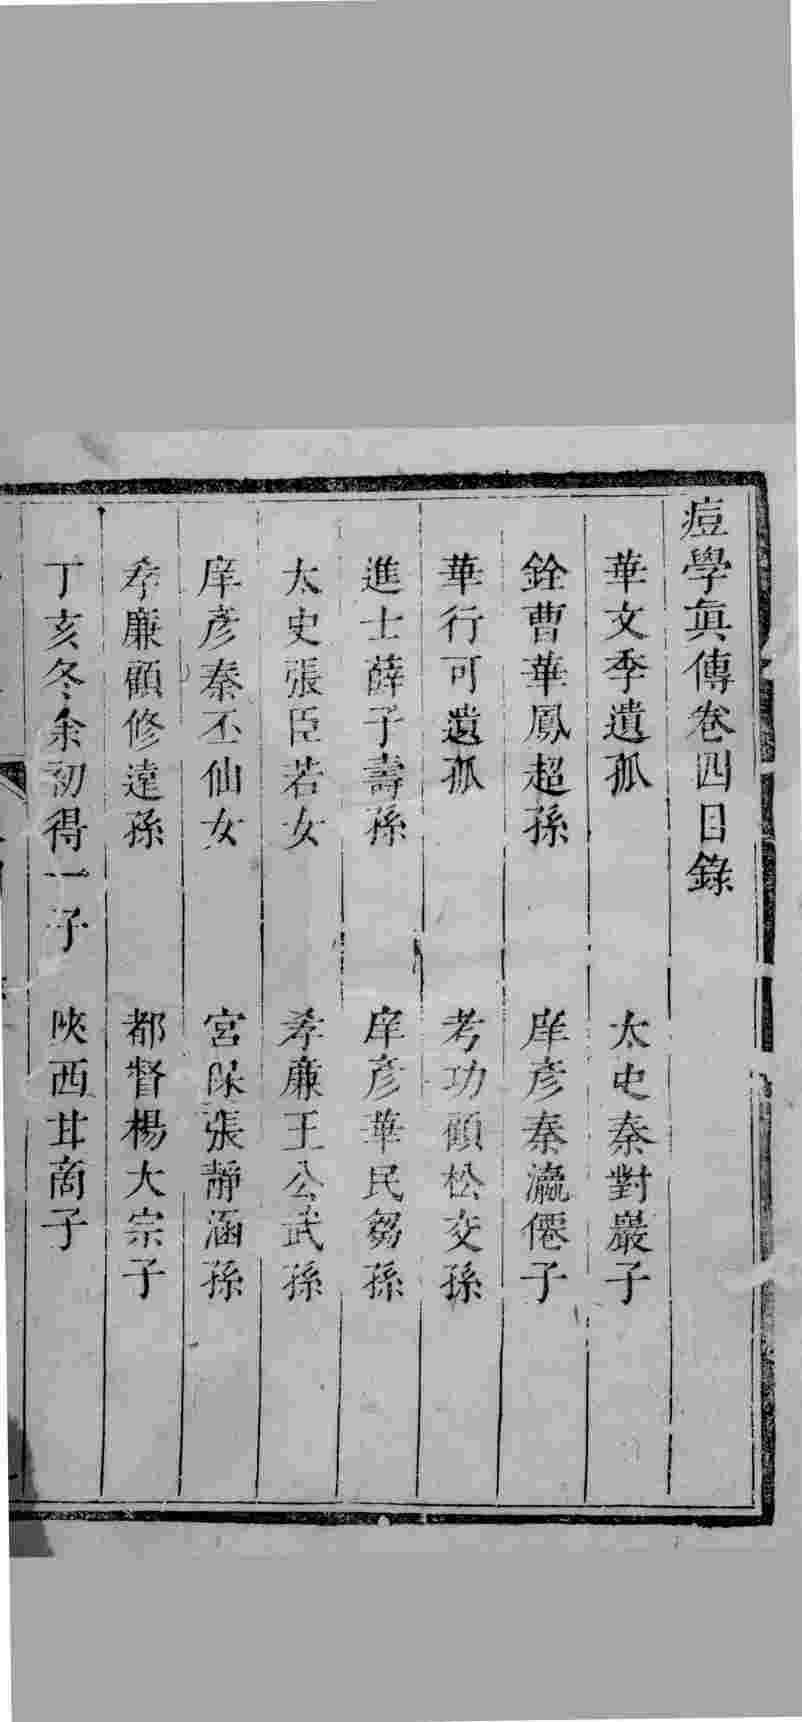 痘學眞傳卷四目錄
華文季遺孤　太史秦對巖子
銓曹華鳳超孫　庠彦秦瀛僊子
華行可遺孤　考功顧松交孫
進士薛子壽孫　庠彦華民芻孫
太史張臣若女　孝廉王公武孫
庠彦秦丕仙女　宮保張靜涵孫
孝廉顧修遠孫　都督楊大宗子
丁亥冬余初得一子　陜西甘商子